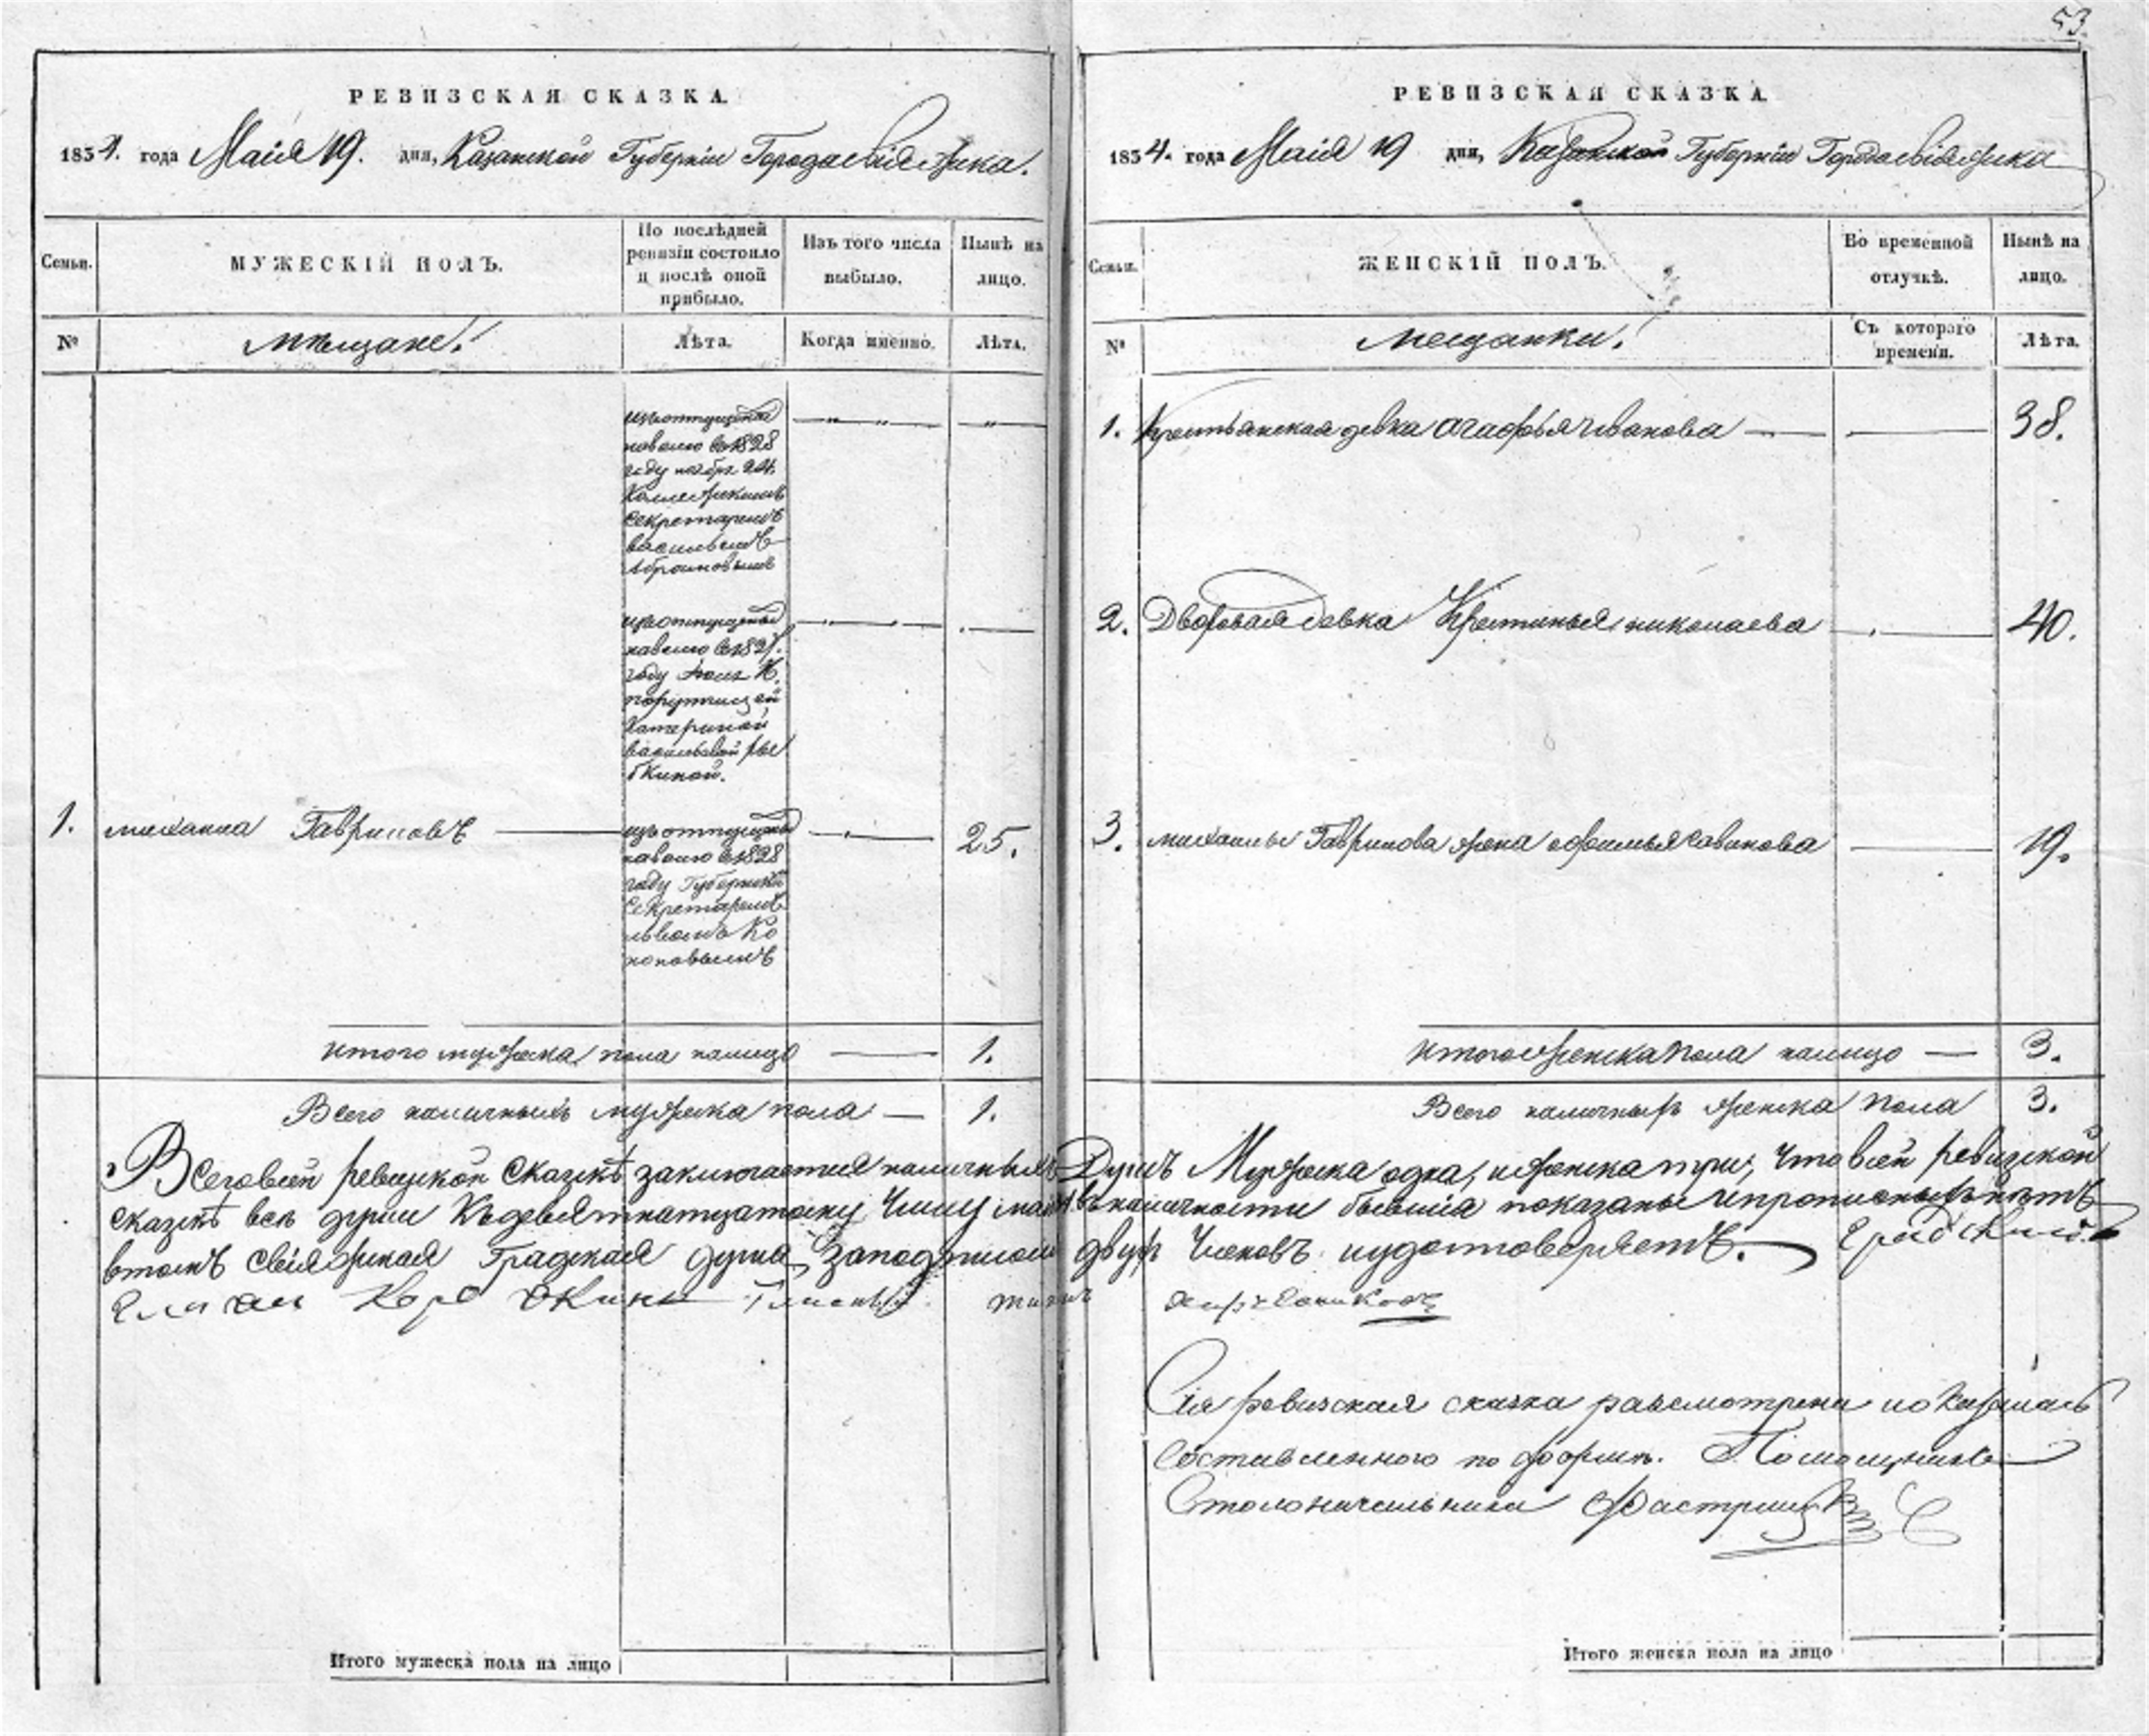 53.
РЕВИЗСКАЯ СКАЗКА.
1834. года Маія 19. дня, Казанской Губерніи Города свіяжска.
Семьи.
МУЖЕСКІЙ ПОЛЪ.
По послѣдней
ревизіи состояло
и послѣ оной
прибыло.
Изъ того числа
выбыло.
Нынѣ на
лицо.
№
мѣщане:
Лѣта.
Когда именно.
Лѣта.
изъ отпущенны
наволю въ 1828
году ноября 24.
Коллежскимъ
секретаремъ
васильемъ
изъ отпущенны
наволю въ 182
году
порутчицей
Катериной
васильевой ры
бкиной.
1. михаила Гавриловъ 25.
изъ отпущенны
наволю въ 1828
году Губернскимъ
Секретаремъ
львомъ Ко
ноповымъ
итого мужска пола налицо — 1.
Всего наличныхъ мужска пола — 1.
РЕВИЗСКАЯ СКАЗКА.
1834. года Маія 19 дня, Казанской Губерніи Города свіяжска
Семьи.
ЖЕНСКІЙ ПОЛЪ.
Во временной
отлучкѣ.
Нынѣ на
лицо.
№
мещанки:
Съ котораго
времени.
Лѣта.
1. Крестьянская девка агафья иванова — 38.
2. Дворовая девка Крестинья николаева — 40.
3. михаилы Гаврилова жена ефимья савинова — 19.
итого женска пола налицо — 3.
Всего наличныхъ женска пола 3.
Всего в сей ревизской сказкѣ заключается наличныхъ Душъ Мужска одна, и женска три, что в сей ревизской
сказкѣ все души Къ девятнатцатому числу маія в наличности бывшія показаны и прописныхъ нѣтъ
в томъ свіяжская Градская дума за подписомъ двухъ Членовъ и удостоверяетъ. Градской
Глава Гласный
Сія ревизская сказка разсмотрена и оказалась
составленного по формѣ. Помощникъ
Столоначальника
Итого мужеска пола на лицо
Итого женска пола на лицо